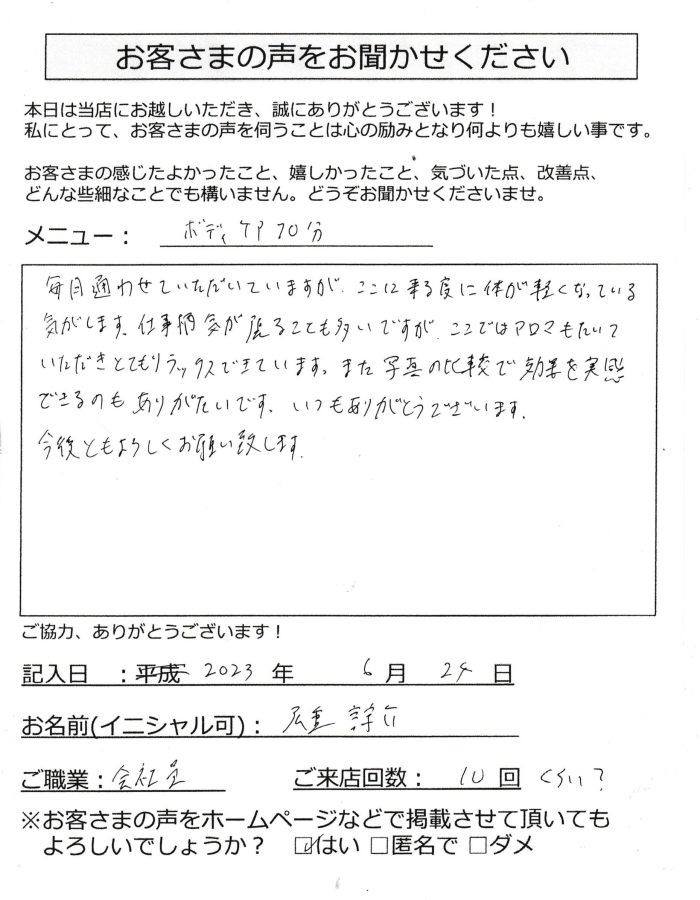 お客さまの声をお聞かせください
本日は当店にお越しいただき、誠にありがとうございます！
私にとって、お客さまの声を伺うことは心の励みとなり何よりも嬉しい事です。
お客さまの感じたよかったこと、嬉しかったこと、気づいた点、改善点、
どんな些細なことでも構いません。どうぞお聞かせくださいませ。
メニュー： ボディケア70分
毎月通わせていただいていますが、ここに来る度に体が軽くなっている
気がします。仕事柄気が張ることも多いですが、ここではアロマもたいて
いただきとてもリラックスできています。また写真の比較で効果を実感
できるのもありがたいです。いつもありがとうございます。
今後ともよろしくお願い致します。
ご協力、ありがとうございます！
記入日 ：平成 2023 年 6 月 24 日
お名前(イニシャル可)：
ご職業：会社員 ご来店回数： 10 回 くらい？
※お客さまの声をホームページなどで掲載させて頂いても
よろしいでしょうか？ ☑はい □匿名で □ダメ